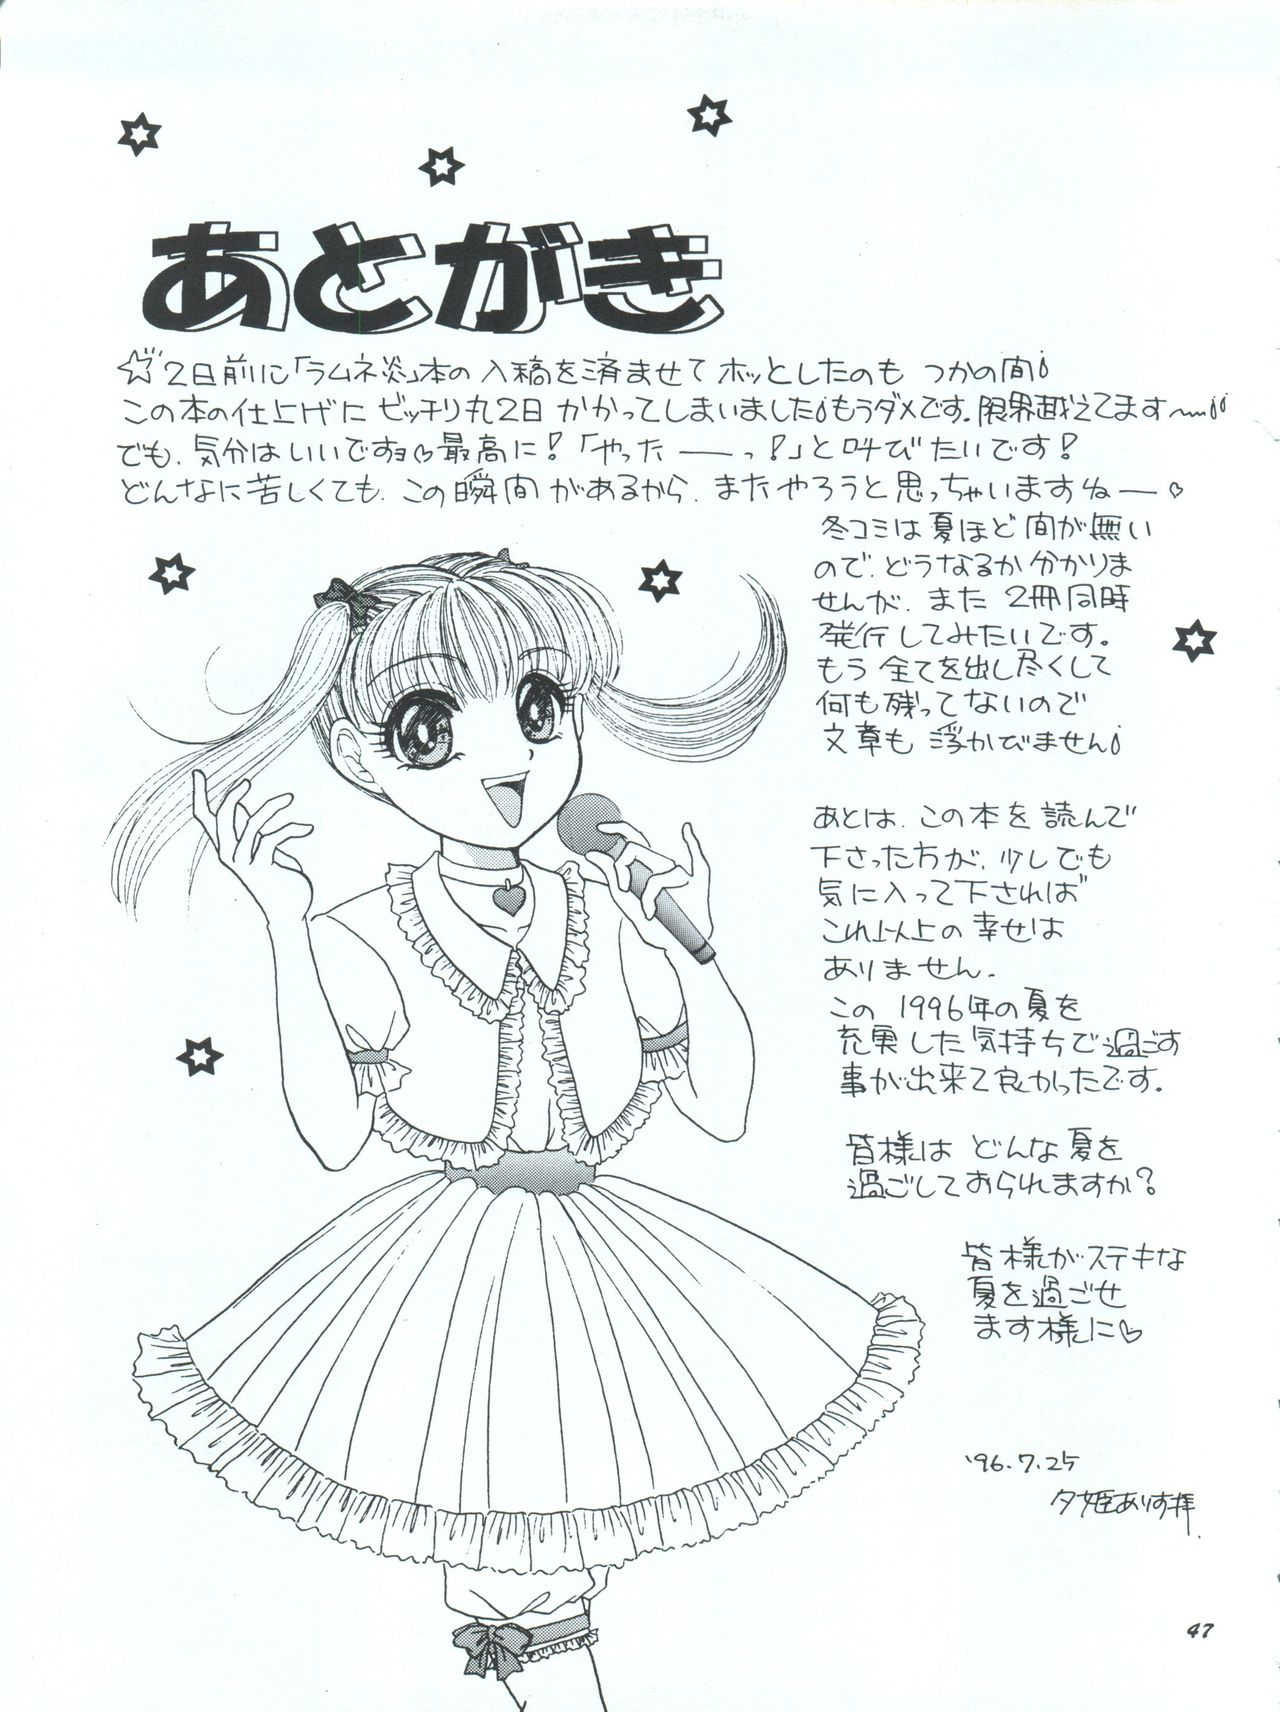 あとがき
☆2日前に「ラムネ炎」本の入稿を済ませてホッとしたのもつかの間!
この本の仕上げにビッチリ丸2日かかってしまいました!もうダメです。限界越えてます〜!!
でも、気分はいいですョ♡最高に!「やったーーっ!」と叫びたいです!
どんなに苦しくても、この瞬間があるから、またやろうと思っちゃいますねー♡
冬コミは夏ほど間が無い
ので、どうなるか分かりま
せんが、また2冊同時
発行してみたいです。
もう全てを出し尽くして
何も残ってないので
文章も浮かびません!
あとは、この本を読んで
下さった方が、少しでも
気に入って下されば
これ以上の幸せは
ありません。
この1996年の夏を
充実した気持ちで過ごす
事が出来て良かったです。
皆様はどんな夏を
過ごしておられますか?
皆様がステキな
夏を過ごせ
ます様に♡
'96.7.25
夕姫ありす拝.
47